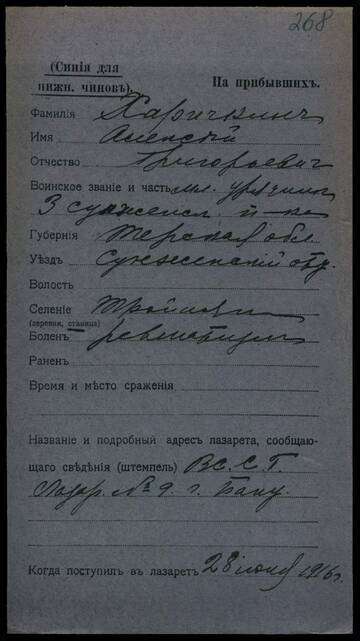 268
(Синія для
нижн. чиновъ)
На прибывшихъ.
Фамилія Харичкинъ
Имя Алексѣй
Отчество Григорьевич
Воинское званіе и часть мл. урядник
3 сунженск. п-ка
Губернія Терская обл.
Уѣздъ Сунженскій отд.
Волость
Селеніе Троицкая
(деревня, станица)
Боленъ ревматизм
Раненъ
Время и мѣсто сраженія
Названіе и подробный адресъ лазарета, сообщаю-
щаго свѣдѣнія (штемпель) В.С.С.Г.
Лазар. № 9. г. Баку.
Когда поступилъ въ лазаретъ 28 1916 г.